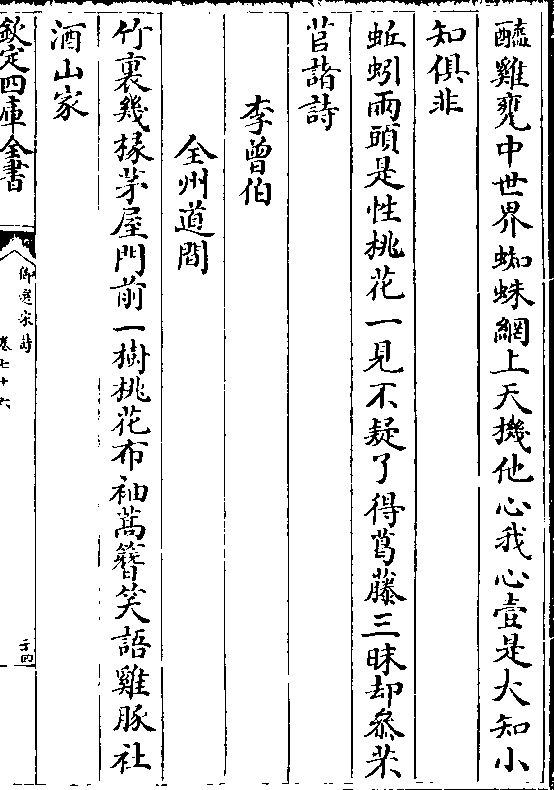 醯雞甕中世界蜘蛛網上天機他心我心壹是大知小
知俱非
蚯蚓兩頭是性桃花一見不疑了得葛藤三昧却參柴
苢諸詩
李曾伯
全州道間
竹裏幾椽茅屋門前一樹桃花布袖蒿簪笑語雞豚社
酒山家
欽定四庫全書
御選宋詩
卷七十六
二十四